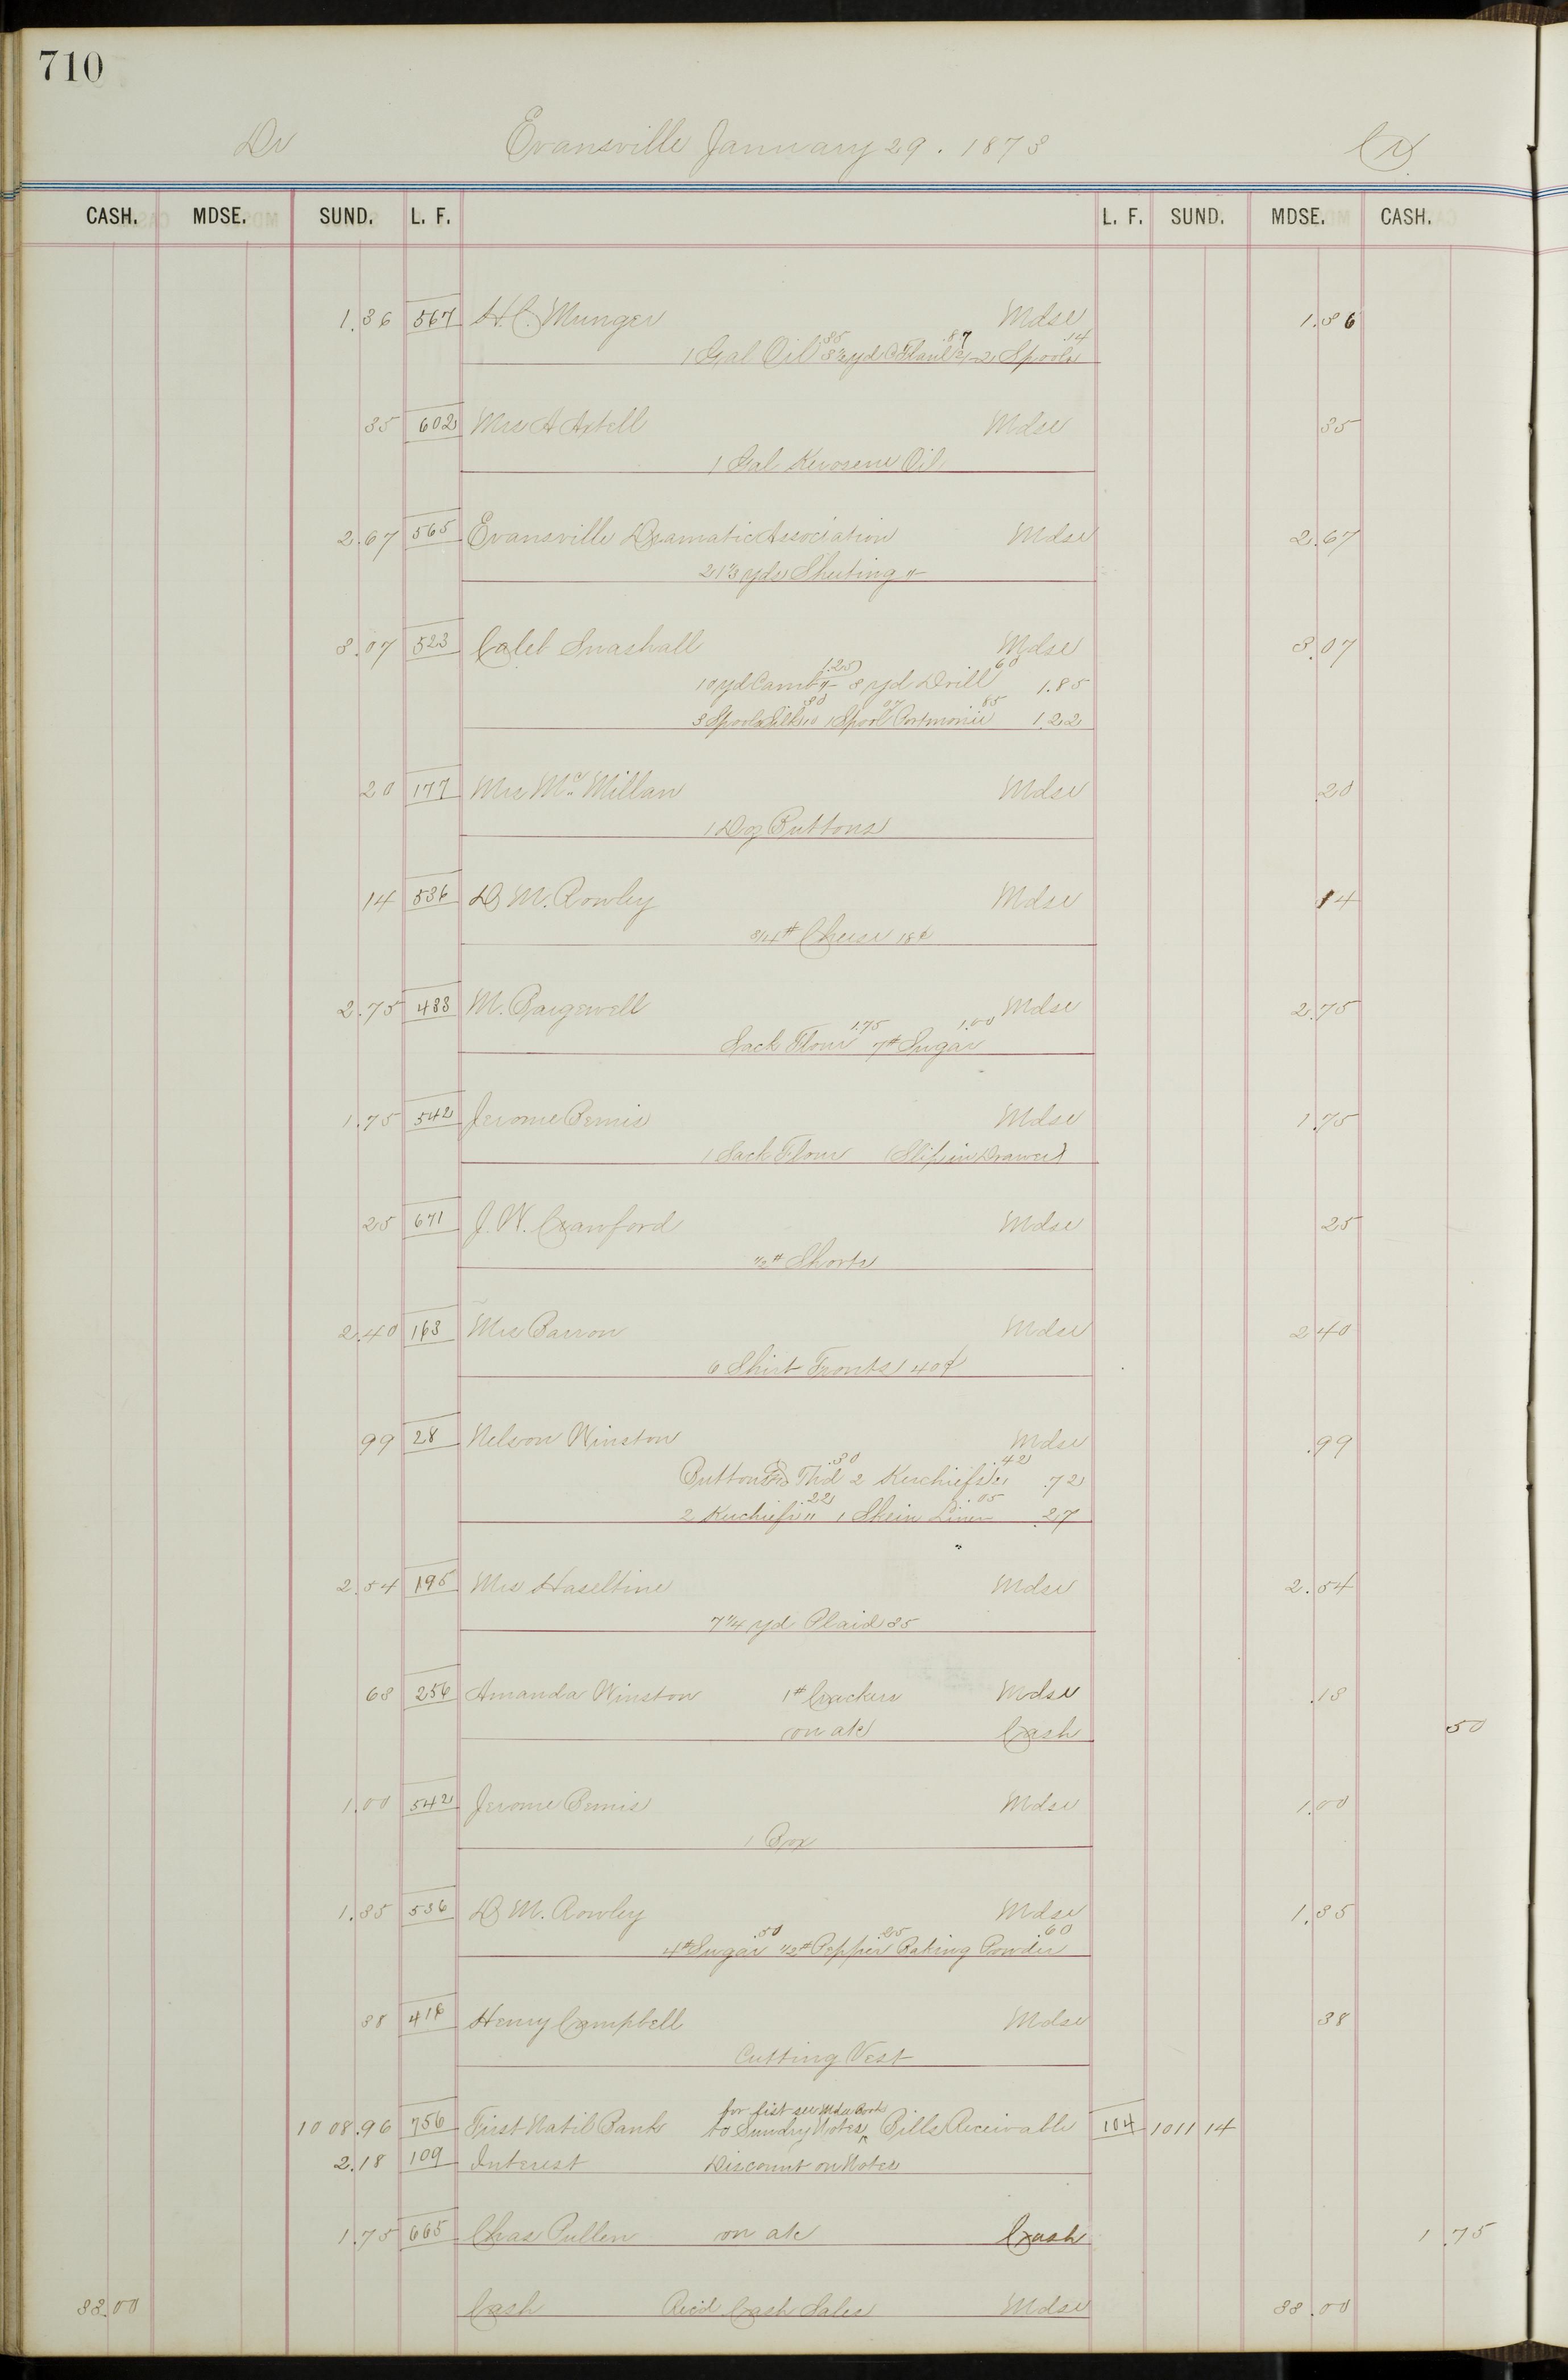 710
Dr Evansville January 29. 1873 Cr
CASH. MDSE. SUND. L. F. L. F. SUND. MDSE. CASH.
1.36 567 H. C. Munger Mdse 1.36
1 Gal Oil .35 3½ yd C Flanl .87 2 Spools .14
35 602 Mrs A Axtell Mdse 35
1 Gal Kerosene Oil
2.67 565 Evansville Dramatic Association Mdse 2.67
21⅓ yds Sheeting
3.07 523 Caleb Snashall Mdse 3.07
10 yd Camb 1.25 3 yd Drill 60 1.85
3 Spools Silk 10 30 1 Spool 07 Portmonie 85 1.22
20 177 Mrs Mc Millan Mdse .20
1 Doz Buttons
14 536 D M. Rowley Mdse 14
3/4# Cheese 18¢
2.75 483 M. Bargewell Mdse 2.75
Sack Flour 1.75 7# Sugar 1.00
1.75 542 Jerome Bemis Mdse 1.75
1 Sack Flour (Slip in Drawer)
25 671 J. W. Crawford Mdse 25
½# Shorts
2.40 163 Mrs Barron Mdse 2.40
6 Shirt Fronts 40¢
99 28 Nelson Winston Mdse .99
Buttons & Thd .30 2 Kerchiefs 21 .42 .72
2 Kerchiefs 11 .22 1 Skein Linen .05 .27
2.54 195 Mrs Haseltine Mdse 2.54
7¼ yd Plaid 35
68 256 Amanda Winston 1# Crackers Mdse .18
on a/c Cash 50
1.00 542 Jerome Bemis Mdse 1.00
1 Box
1.35 536 D M. Rowley Mdse 1.35
4# Sugar .50 ½# Pepper .25 Baking Powder .60
38 416 Henry Campbell Mdse 38
Cutting Vest
for list see Mdse Book
1008.96 756 First Natil Bank to Sundry Notes, Bills Receivable 104 1011 14
2.18 109 Interest Discount on Notes
1.75 665 Chas Pullen on a/c Cash 1.75
33.00 Cash Recd Cash Sales Mdse 33.00